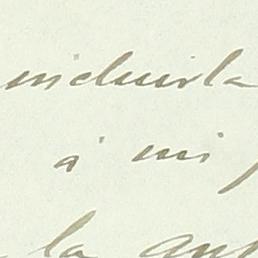 incluirla
á mi
la